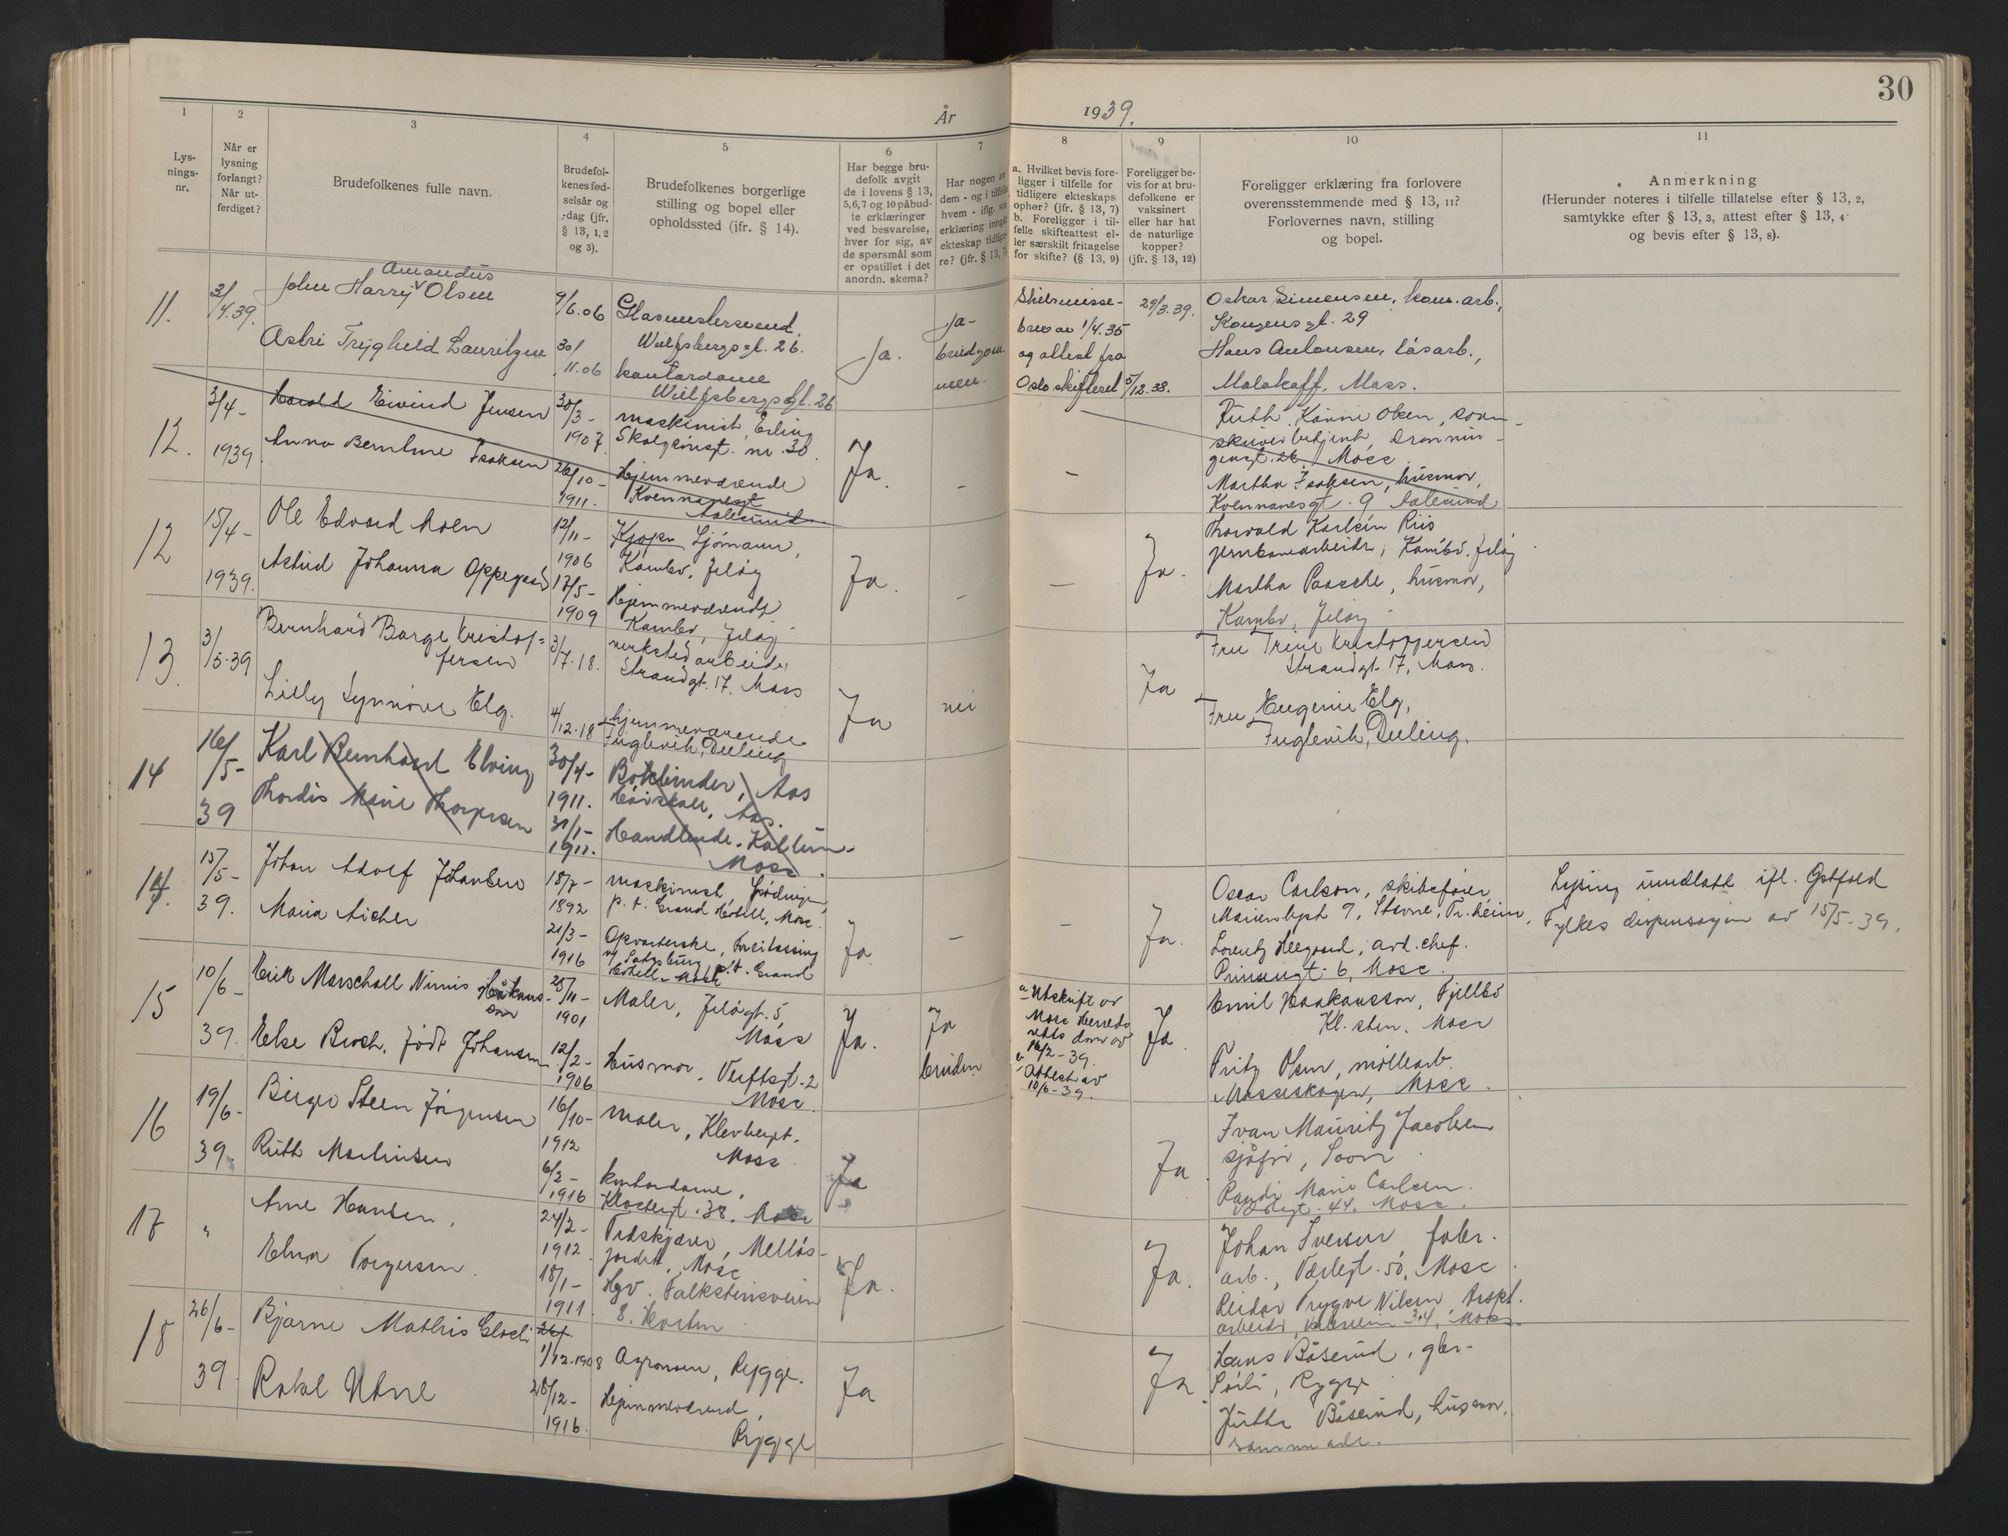 30
År
1939.
1
2
3
4
5
6
7
8
9
10
11
Lys-
nings-
nr.
Når er
lysning
forlangt?
Når ut-
ferdiget?
Brudefolkenes fulle navn.
Brudefol-
kenes fød-
selsår og
-dag (jfr.
§ 13, 1, 2
og 3).
Brudefolkenes borgerlige
stilling og bopel eller
opholdssted (ifr. § 14).
Har begge bru-
defolk avgit
de i lovens § 13,
5, 6, 7 og 10 påbud-
te erklæringer
ved besvarelse,
hver for sig, av
de spørsmål som
er opstillet i det
anordn. skema?
Har nogen av
dem - og i tilfelle
hvem - iflg. sin
erklæring inngått
ekteskap tidlige-
re? (jfr. § 13, 7)
a. Hvilket bevis fore-
ligger i tilfelle for
tidligere ekteskaps
ophør? (jfr. § 13, 7)
b. Foreligger i til-
felle skifteattest el-
ler særskilt fritagelse
for skifte? (§ 13, 9)
Foreligger be-
vis for at bru-
defolkene er
vaksinert
eller har hat
de naturlige
kopper?
(jfr. § 13, 12)
Foreligger erklæring fra forlovere
overensstemmende med § 13, 11?
Forlovernes navn, stilling
og bopel.
Anmerkning
(Herunder noteres i tilfelle tillatelse efter § 13, 2,
samtykke efter § 13, 3, attest efter § 13, 4
og bevis efter § 13, 8).
11.
3/4.39.
Amandus
John Harry Olsen
Astri Tryghild Lauritzen
9/6.06
30/11.06
Glasmestersvend,
Wulfsbergsgt. 26.
kontordame
Wulfsbergsgt. 26
Ja.
Ja-
brudgom-
men.
Skilsmisse-
brev av 1/4.35
og attest fra
Oslo skifteret 5/12.38.
29/3.39.
Oskar Simensen, kom. arb.,
Kongensgt. 29
Hans Antonsen, løsarb.,
Malakoff, Moss.
12.
3/4-
1939.
Harald Eivind Jensen
Anna Berntine Isaksen
30/3-
1907.
26/10-
1911.
maskinist, Erling
Skalgsonsgt. nr. 30.
Hjemmeværende
Kvennanesgt
Aalesund
Ja.
-
-
Ruth Kaune Olsen,
Moss
Martha Isaksen, husmor,
Kvennanesgt. 9 Aalesund
12
15/4-
1939.
Ole Edvard Moen
Astrid Johanna Oppegaard
12/11-
1906
17/5-
1909
Sjømann,
Kambo, Jeløy
Hjemmeværende
Kambo, Jeløy
Ja.
-
-
Ja.
Thorvald Karlsén Riis
jernbanearbeider, Kambo, Jeløy
Martha Paasche, husmor,
Kambo, Jeløy
13.
3/5-39
Bernhard Borge Kristof-
fersen
Lilly Synnøve Elg.
3/7.18.
4/12.18
verkstedarbeider
Strandgt. 17, Moss
hjemmeværende
Fuglevik, Dilling
Ja
nei
Ja
Fru Trine Kristoffersen
Strandgt. 17, Moss.
Fru Eugenie Elg,
Fuglevik, Dilling.
14
16/5-
39
Karl Bernhard Elving
Thordis Marie Thorpesen
30/4-
1911.
31/1-
1911.
Bokbinder, Aas
Aas.
Handlende.
Moss.
14.
15/5-
39.
Johan Adolf Johansen
Maria Aicher
18/7-
1892
21/3-
1916
maskinist,
p.t. Grand Hotell, Moss.
Opvarterske, Freilassing
v/ Salzburg p.t. Grand
Hotell - Moss
Ja
-
-
Ja.
Oscar Carlson, skibsfører,
9, Stavne, Tr.heim,
Lorentz Heegaard, avd. chef.
Prinsensgt. 6, Moss.
Lysing undlatt ifl. Østfold
Fylkes dispensasjon av 15/5-39.
15
10/6-
39.
Erik Marschall Nimis Håkans-
son
Else Broch, født Johansen
25/11-
1901
12/2-
1906
Maler, Jeløgt. 5,
Moss
Husmor, Verftsgt. 2
Moss.
Ja.
Ja
bruden
a Utskrift av
Moss Herreds
retts dom av
16/2-39.
b Attest av
10/6-39.
Ja.
Emil Haakansson, Fjellbo
Kl. sten, Moss
Fritz Olsen, møllearb.
Mosseskogen, Moss.
16
19/6-
39.
Birger Steen Jørgensen
Ruth Martinsen
16/10-
1912
6/2-
1916
maler, Klevbergt.
Moss.
kontordame,
Klostergt. 38, Moss
Ja
Ja.
Ivan Mauritz Jacobsen
Soon.
Randi Marie Carlsen.
Værlegt. 44, Moss.
17
"
Arne Hansen,
Elna Torgersen.
24/2-
1912.
18/1-
1911.
Melløs-
jordet, Moss
Hgv. Falkstensveien
8. Horten
Ja.
Ja.
Johan Iversen fabr.
arb., Værlegt. 50, Moss.
Reidar Trygve Nilsen,
arbeider, Moss.
18
26/6-
39
Bjarne Mathis
Rakel Utne
1/12-1908
28/12-
1916.
Agronom, Rygge.
Hjemmeværend,
Rygge
Ja
Ja
Hans Båserud,
Rygge
Jutta Båserud, husmor,
samme adr.